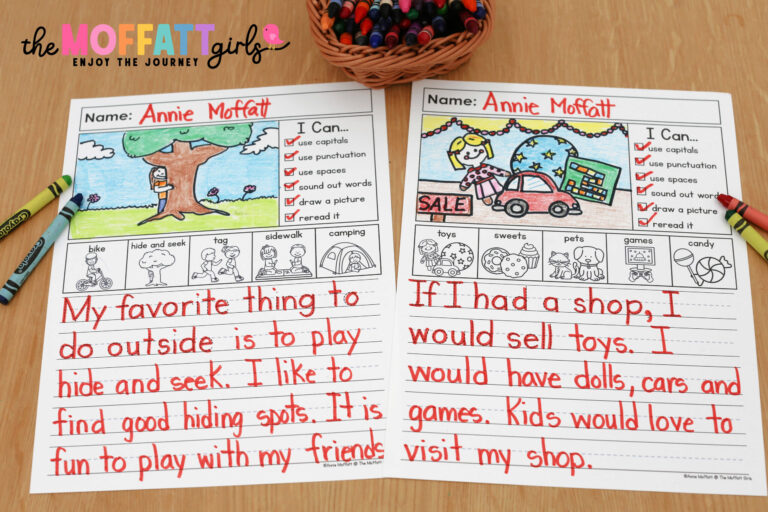 the MOFFATT girls
ENJOY THE JOURNEY
Name: Annie Moffatt
I Can...
use capitals
use punctuation
use spaces
sound out words
draw a picture
reread it
bike
hide and seek
tag
sidewalk
camping
My favorite thing to
do outside is to play
hide and seek. I like to
find good hiding spots. It is
fun to play with my friends
©Annie Moffatt @ The Moffatt Girls
Name: Annie Moffatt
SALE
I Can...
use capitals
use punctuation
use spaces
sound out words
draw a picture
reread it
toys
sweets
pets
games
candy
If I had a shop, I
would sell toys. I
would have dolls, cars and
games. Kids would love to
visit my shop.
©Annie Moffatt @ The Moffatt Girls
Crayola